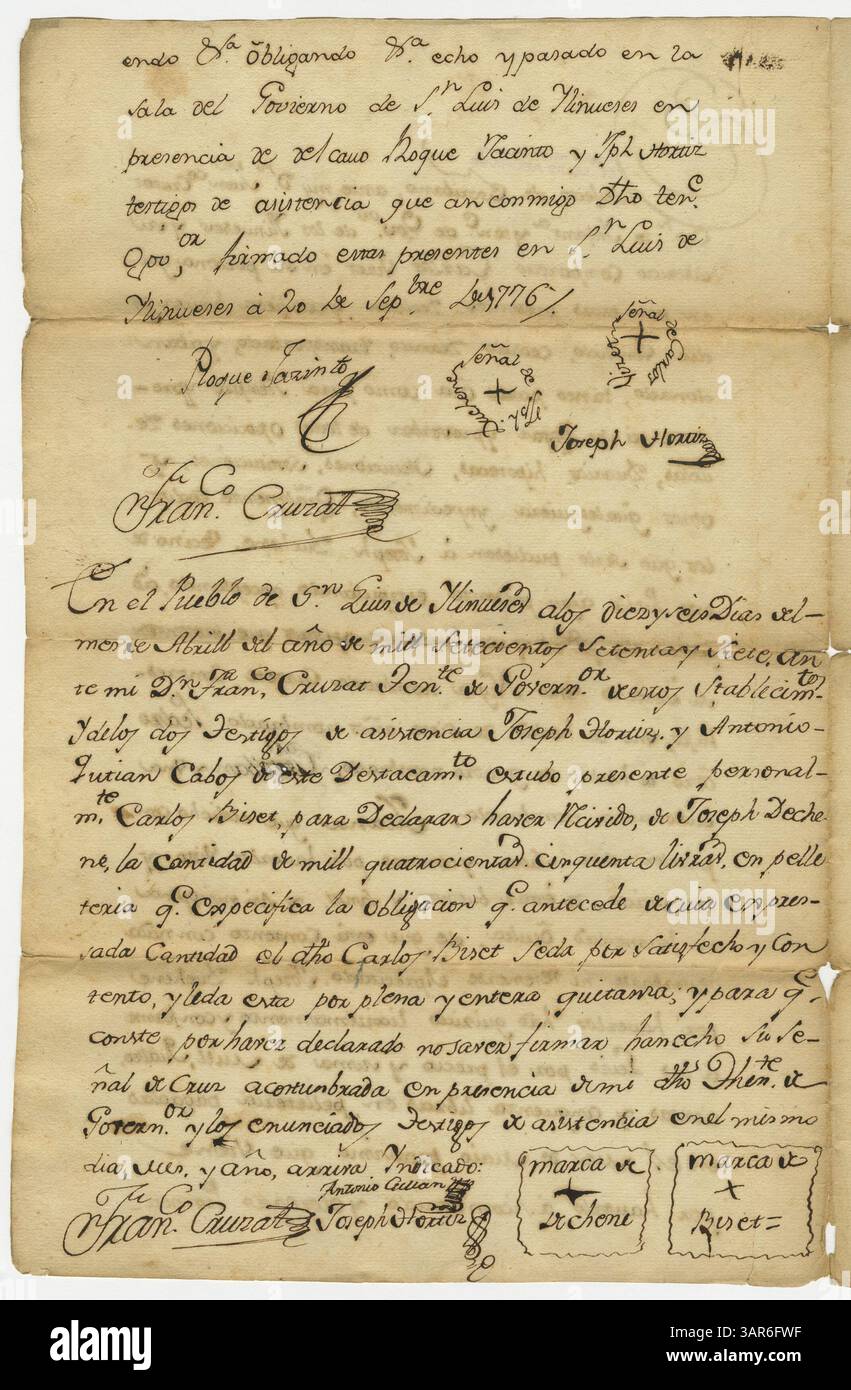 endo &.ª obligando &.ª echo y pasado en la
sala del Govierno de S.n Luis de Ylinueses en
presencia de del cavo Roque Jacinto y Jph Hortiz
testigos de asistencia que an conmigo Dho ten.e
Gov.or, firmado estas presentes en S.n Luis de
Ylinueses à 20 de Sep.bre de 1776 /.
Señal de Carlos
+
Roque Jacinto
Señal de Jph Duchene
+
Joseph Hortiz
Fran.co Cruzat
En el Pueblo de S.n Luis de Ylinuesed a los diez y seis Dias del
mes de Abrill del año de mill setecientos setenta y siete, an
te mi D.n Fran.co Cruzat Ten.te de Govern.or de estos Stablecim.tos
y de los dos Testigos de asistencia Joseph Hortiz, y Antonio
Gutian Cabos de este Destacam.to estubo presente personal-
m.te Carlos Biset, para Declarar haver Recivido, de Joseph Deche
ne, la cantidad de mill quatrocientas cinquenta livras, en pelle
teria q.e expecifica la obligacion q.e antecede de cuia enpres-
sada Cantidad el dho Carlos Biset seda por satisfecho y con
tento, y leda esta por plena y entera quitanza; y para q.e
conste por haver declarado no saver firmar hanecho su se-
ñal de Cruz acostunbrada en presencia de mi dho Then.te de
Govern.or y los enunciados Testigos de asistencia en el mismo
dia, mes, y año, arriva Yndicado:
Antonio Gutian
Fran.co Cruzat
Joseph Hortiz
marca de
+
dechene
marca de
+
Biset =
alamy
Image ID: 3AR6FWF
www.alamy.com